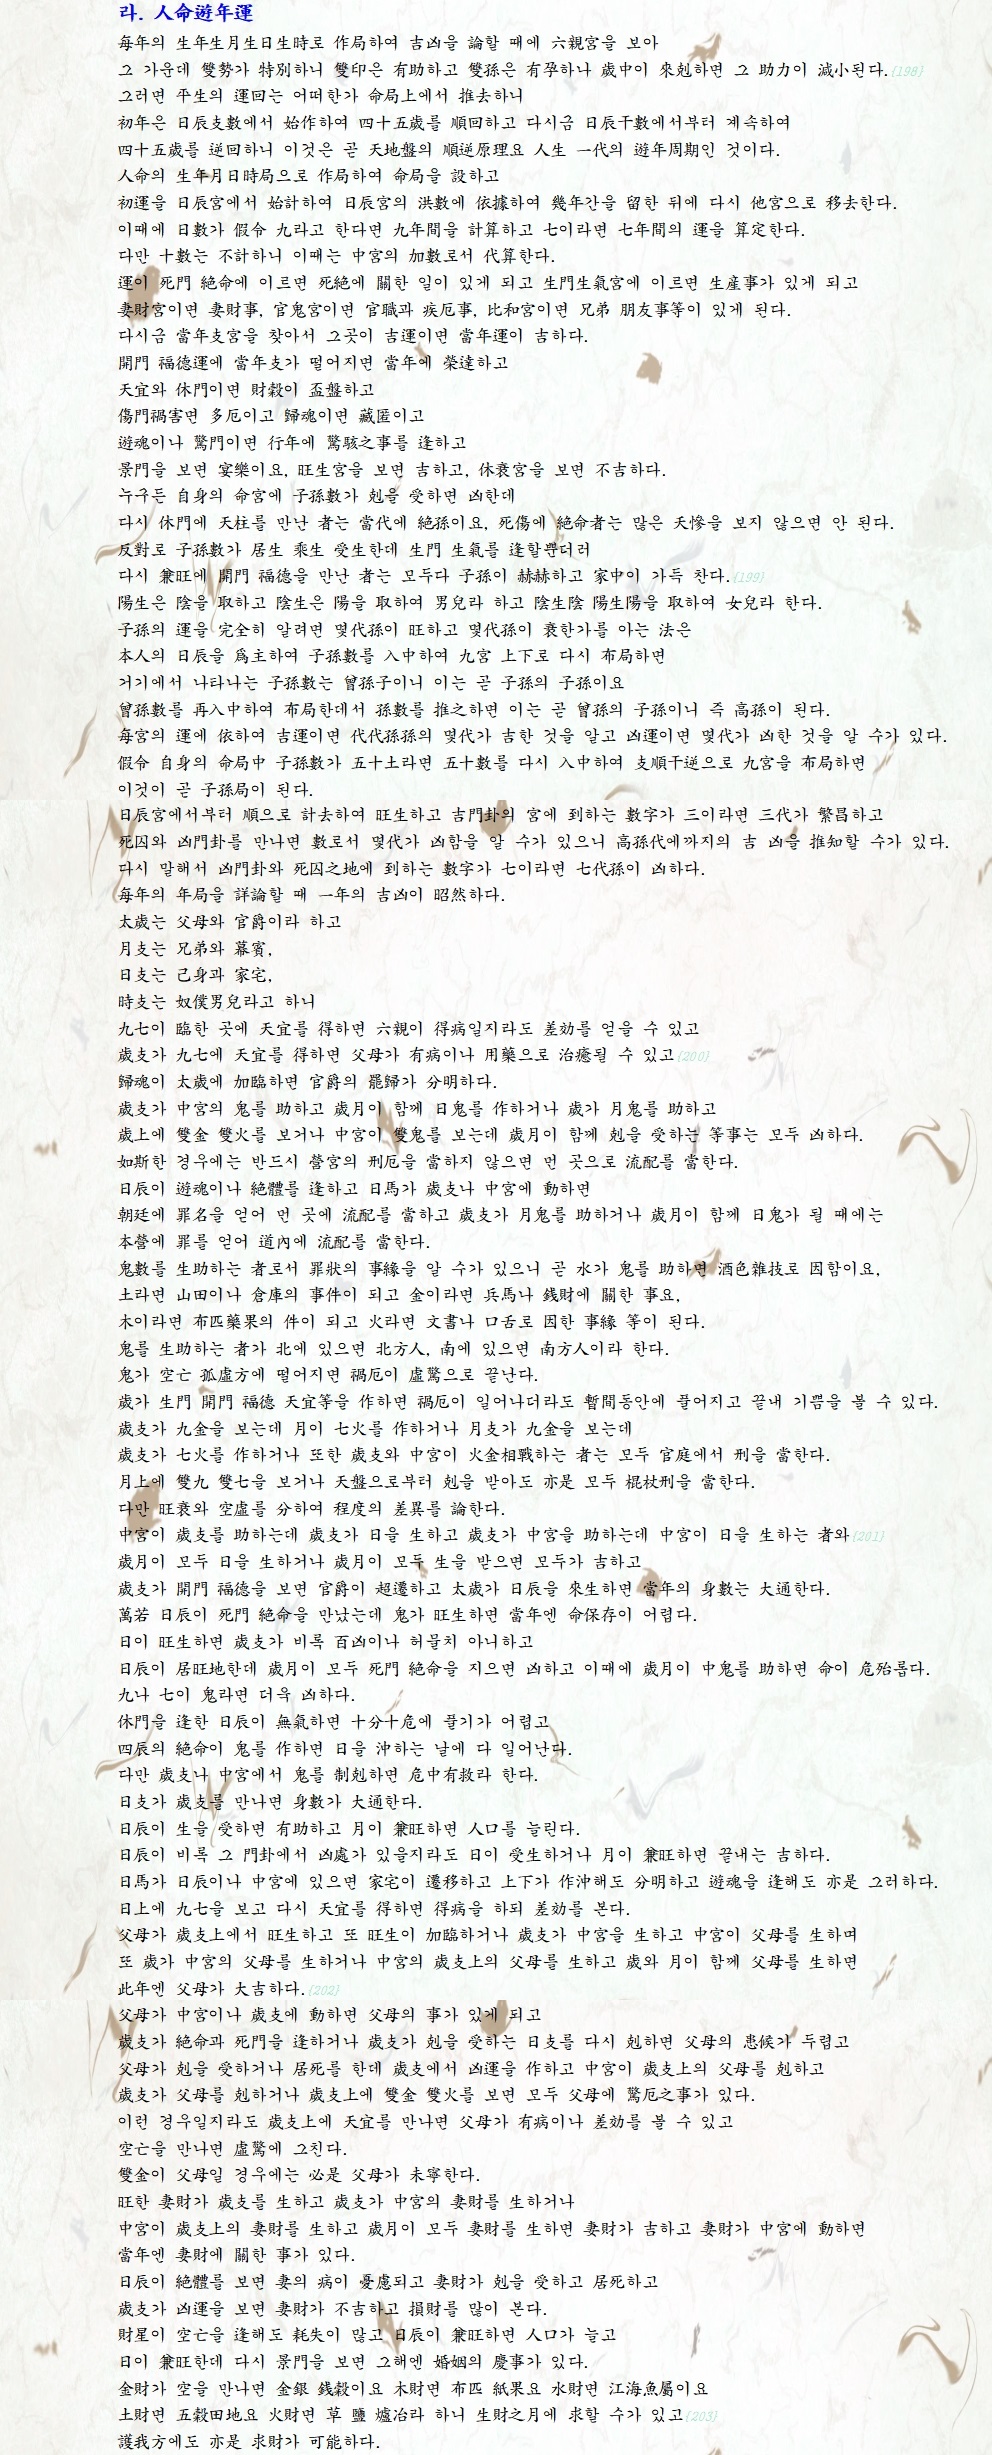 라. 人命遊年運
每年의 生年生月生日生時로 作局하여 吉凶을 論할 때에 六親宮을 보아
그 가운데 雙勢가 特別하니 雙印은 有助하고 雙孫은 有孕하나 歲中이 來剋하면 그 助力이 減小된다.{198}
그러면 平生의 運回는 어떠한가 命局上에서 推去하니
初年은 日辰支數에서 始作하여 四十五歲를 順回하고 다시금 日辰干數에서부터 계속하여
四十五歲를 逆回하니 이것은 곧 天地盤의 順逆原理요 人生 一代의 遊年周期인 것이다.
人命의 生年月日時局으로 作局하여 命局을 設하고
初運을 日辰宮에서 始計하여 日辰宮의 洪數에 依據하여 幾年간을 留한 뒤에 다시 他宮으로 移去한다.
이때에 日數가 假令 九라고 한다면 九年間을 計算하고 七이라면 七年間의 運을 算定한다.
다만 十數는 不計하니 이때는 中宮의 加數로서 代算한다.
運이 死門 絶命에 이르면 死絶에 關한 일이 있게 되고 生門生氣宮에 이르면 生産事가 있게 되고
妻財宮이면 妻財事, 官鬼宮이면 官職과 疾厄事, 比和宮이면 兄弟 朋友事等이 있게 된다.
다시금 當年支宮을 찾아서 그곳이 吉運이면 當年運이 吉하다.
開門 福德運에 當年支가 떨어지면 當年에 榮達하고
天宜와 休門이면 財穀이 盃盤하고
傷門禍害면 多厄이고 歸魂이면 藏匿이고
遊魂이나 驚門이면 行年에 驚駭之事를 逢하고
景門을 보면 宴樂이요, 旺生宮을 보면 吉하고, 休衰宮을 보면 不吉하다.
누구든 自身의 命宮에 子孫數가 剋을 受하면 凶한데
다시 休門에 天柱를 만난 者는 當代에 絶孫이요, 死傷에 絶命者는 많은 夭慘을 보지 않으면 안 된다.
反對로 子孫數가 居生 乘生 受生한데 生門 生氣를 逢할뿐더러
다시 兼旺에 開門 福德을 만난 者는 모두다 子孫이 赫赫하고 家中이 가득 찬다.{199}
陽生은 陰을 取하고 陰生은 陽을 取하여 男兒라 하고 陰生陰 陽生陽을 取하여 女兒라 한다.
子孫의 運을 完全히 알려면 몇代孫이 旺하고 몇代孫이 衰한가를 아는 法은
本人의 日辰을 爲主하여 子孫數를 入中하여 九宮 上下로 다시 布局하면
거기에서 나타나는 子孫數는 曾孫子이니 이는 곧 子孫의 子孫이요
曾孫數를 再入中하여 布局한데서 孫數를 推之하면 이는 곧 曾孫의 子孫이니 즉 高孫이 된다.
每宮의 運에 依하여 吉運이면 代代孫孫의 몇代가 吉한 것을 알고 凶運이면 몇代가 凶한 것을 알 수가 있다.
假令 自身의 命局中 子孫數가 五十土라면 五十數를 다시 入中하여 支順干逆으로 九宮을 布局하면
이것이 곧 子孫局이 된다.
日辰宮에서부터 順으로 計去하여 旺生하고 吉門卦의 宮에 到하는 數字가 三이라면 三代가 繁昌하고
死囚와 凶門卦를 만나면 數로서 몇代가 凶함을 알 수가 있으니 高孫代에까지의 吉 凶을 推知할 수가 있다.
다시 말해서 凶門卦와 死囚之地에 到하는 數字가 七이라면 七代孫이 凶하다.
每年의 年局을 詳論할 때 一年의 吉凶이 昭然하다.
太歲는 父母와 官爵이라 하고
月支는 兄弟와 幕賓,
日支는 己身과 家宅,
時支는 奴僕男兒라고 하니
九七이 臨한 곳에 天宜를 得하면 六親이 得病일지라도 差効를 얻을 수 있고
歲支가 九七에 天宜를 得하면 父母가 有病이나 用藥으로 治癒될 수 있고{200}
歸魂이 太歲에 加臨하면 官爵의 罷歸가 分明하다.
歲支가 中宮의 鬼를 助하고 歲月이 함께 日鬼를 作하거나 歲가 月鬼를 助하고
歲上에 雙金 雙火를 보거나 中宮이 雙鬼를 보는데 歲月이 함께 剋을 受하는 等事는 모두 凶하다.
如斯한 경우에는 반드시 營宮의 刑厄을 當하지 않으면 먼 곳으로 流配를 當한다.
日辰이 遊魂이나 絶體를 逢하고 日馬가 歲支나 中宮에 動하면
朝廷에 罪名을 얻어 먼 곳에 流配를 當하고 歲支가 月鬼를 助하거나 歲月이 함께 日鬼가 될 때에는
本營에 罪를 얻어 道內에 流配를 當한다.
鬼數를 生助하는 者로서 罪狀의 事緣을 알 수가 있으니 곧 水가 鬼를 助하면 酒色雜技로 因함이요,
土라면 山田이나 倉庫의 事件이 되고 金이라면 兵馬나 錢財에 關한 事요,
木이라면 布匹藥果의 件이 되고 火라면 文書나 口舌로 因한 事緣 等이 된다.
鬼를 生助하는 者가 北에 있으면 北方人, 南에 있으면 南方人이라 한다.
鬼가 空亡 孤虛方에 떨어지면 禍厄이 虛驚으로 끝난다.
歲가 生門 開門 福德 天宜等을 作하면 禍厄이 일어나더라도 暫間동안에 풀어지고 끝내 기쁨을 볼 수 있다.
歲支가 九金을 보는데 月이 七火를 作하거나 月支가 九金을 보는데
歲支가 七火를 作하거나 또한 歲支와 中宮이 火金相戰하는 者는 모두 官庭에서 刑을 當한다.
月上에 雙九 雙七을 보거나 天盤으로부터 剋을 받아도 亦是 모두 棍杖刑을 當한다.
다만 旺衰와 空虛를 分하여 程度의 差異를 論한다.
中宮이 歲支를 助하는데 歲支가 日을 生하고 歲支가 中宮을 助하는데 中宮이 日을 生하는 者와{201}
歲月이 모두 日을 生하거나 歲月이 모두 生을 받으면 모두가 吉하고
歲支가 開門 福德을 보면 官爵이 超遷하고 太歲가 日辰을 來生하면 當年의 身數는 大通한다.
萬若 日辰이 死門 絶命을 만났는데 鬼가 旺生하면 當年엔 命保存이 어렵다.
日이 旺生하면 歲支가 비록 百凶이나 허물치 아니하고
日辰이 居旺地한데 歲月이 모두 死門 絶命을 지으면 凶하고 이때에 歲月이 中鬼를 助하면 命이 危殆롭다.
九나 七이 鬼라면 더욱 凶하다.
休門을 逢한 日辰이 無氣하면 十分十危에 풀기가 어렵고
四辰의 絶命이 鬼를 作하면 日을 沖하는 날에 다 일어난다.
다만 歲支나 中宮에서 鬼를 制剋하면 危中有救라 한다.
日支가 歲支를 만나면 身數가 大通한다.
日辰이 生을 受하면 有助하고 月이 兼旺하면 人口를 늘린다.
日辰이 비록 그 門卦에서 凶處가 있을지라도 日이 受生하거나 月이 兼旺하면 끝내는 吉하다.
日馬가 日辰이나 中宮에 있으면 家宅이 遷移하고 上下가 作沖해도 分明하고 遊魂을 逢해도 亦是 그러하다.
日上에 九七을 보고 다시 天宜를 得하면 得病을 하되 差効를 본다.
父母가 歲支上에서 旺生하고 또 旺生이 加臨하거나 歲支가 中宮을 生하고 中宮이 父母를 生하며
또 歲가 中宮의 父母를 生하거나 中宮의 歲支上의 父母를 生하고 歲와 月이 함께 父母를 生하면
此年엔 父母가 大吉하다.{202}
父母가 中宮이나 歲支에 動하면 父母의 事가 있게 되고
歲支가 絶命과 死門을 逢하거나 歲支가 剋을 受하는 日支를 다시 剋하면 父母의 患候가 두렵고
父母가 剋을 受하거나 居死를 한데 歲支에서 凶運을 作하고 中宮이 歲支上의 父母를 剋하고
歲支가 父母를 剋하거나 歲支上에 雙金 雙火를 보면 모두 父母에 驚厄之事가 있다.
이런 경우일지라도 歲支上에 天宜를 만나면 父母가 有病이나 差効를 볼 수 있고
空亡을 만나면 虛驚에 그친다.
雙金이 父母일 경우에는 必是 父母가 未寧한다.
旺한 妻財가 歲支를 生하고 歲支가 中宮의 妻財를 生하거나
中宮이 歲支上의 妻財를 生하고 歲月이 모두 妻財를 生하면 妻財가 吉하고 妻財가 中宮에 動하면
當年엔 妻財에 關한 事가 있다.
日辰이 絶體를 보면 妻의 病이 憂慮되고 妻財가 剋을 受하고 居死하고
歲支가 凶運을 보면 妻財가 不吉하고 損財를 많이 본다.
財星이 空亡을 逢해도 耗失이 많고 日辰이 兼旺하면 人口가 늘고
日이 兼旺한데 다시 景門을 보면 그해엔 婚姻의 慶事가 있다.
金財가 空을 만나면 金銀 錢穀이요 木財면 布匹 紙果요 水財면 江海魚屬이요
土財면 五穀田地요 火財면 草 鹽 爐冶라 하니 生財之月에 求할 수가 있고{203}
護我方에도 亦是 求財가 可能하다.